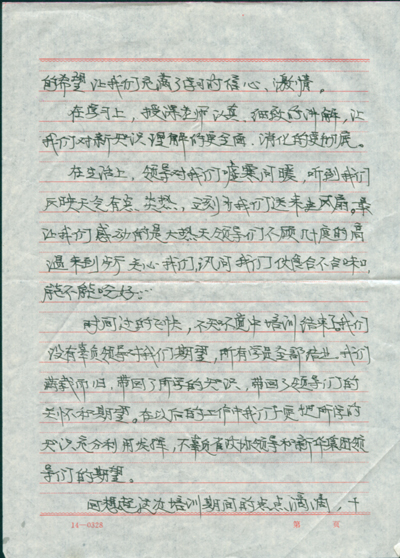 的希望让我们充满了学习的信心、激情。
在学习上，授课老师认真、细致的讲解，让
我们对新知识理解的更全面、消化的更彻底。
在生活上，领导对我们嘘寒问暖，听到我们
反映天气有些炎热，立刻为我们送来电风扇。最
让我们感动的是大热天领导们不顾几十度的高
温来到 关心我们，询问我们伙食合不合味口，
能不能吃好…
时间过的飞快，不知不觉中培训结束了，我们
没有辜负领导对我们期望，所有学员全部结业，我们
满载而归，带回了所学的知识，带回了领导们的
关怀和期望。在以后的工作中我们予更把所学的
知识充分利用发挥，不辜负 领导和新华集团领
导们的期望。
回想起这次培训期间的点点滴滴，
14-0328
第 页